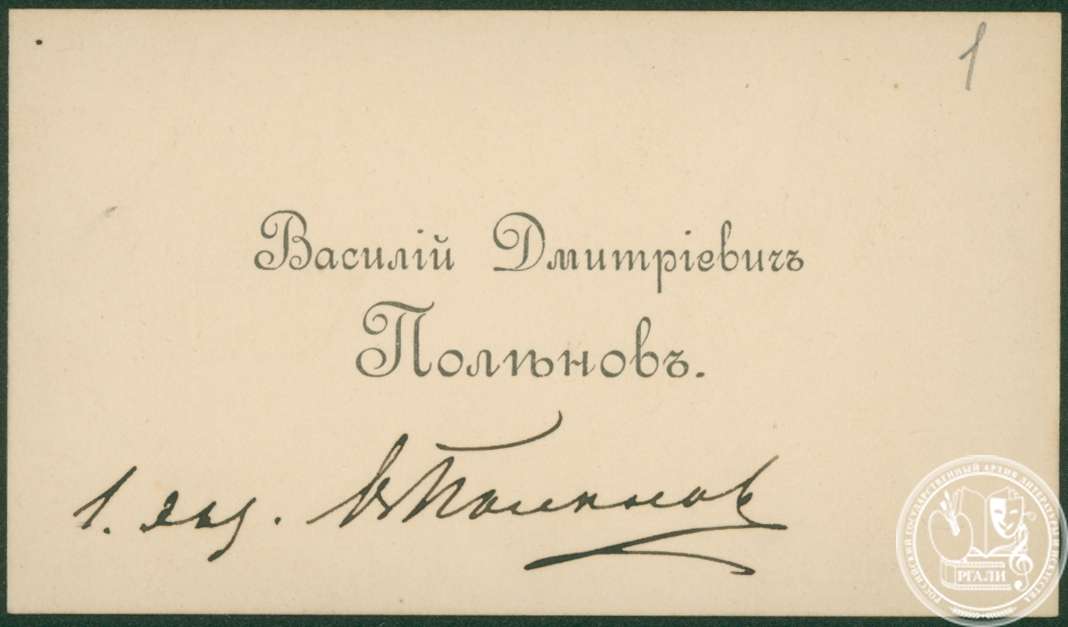 1
Василій Дмитріевичъ
Полѣновъ.
1. экз. В Поленов
РОССИЙСКИЙ ГОСУДАРСТВЕННЫЙ АРХИВ ЛИТЕРАТУРЫ И ИСКУССТВА
РГАЛИ